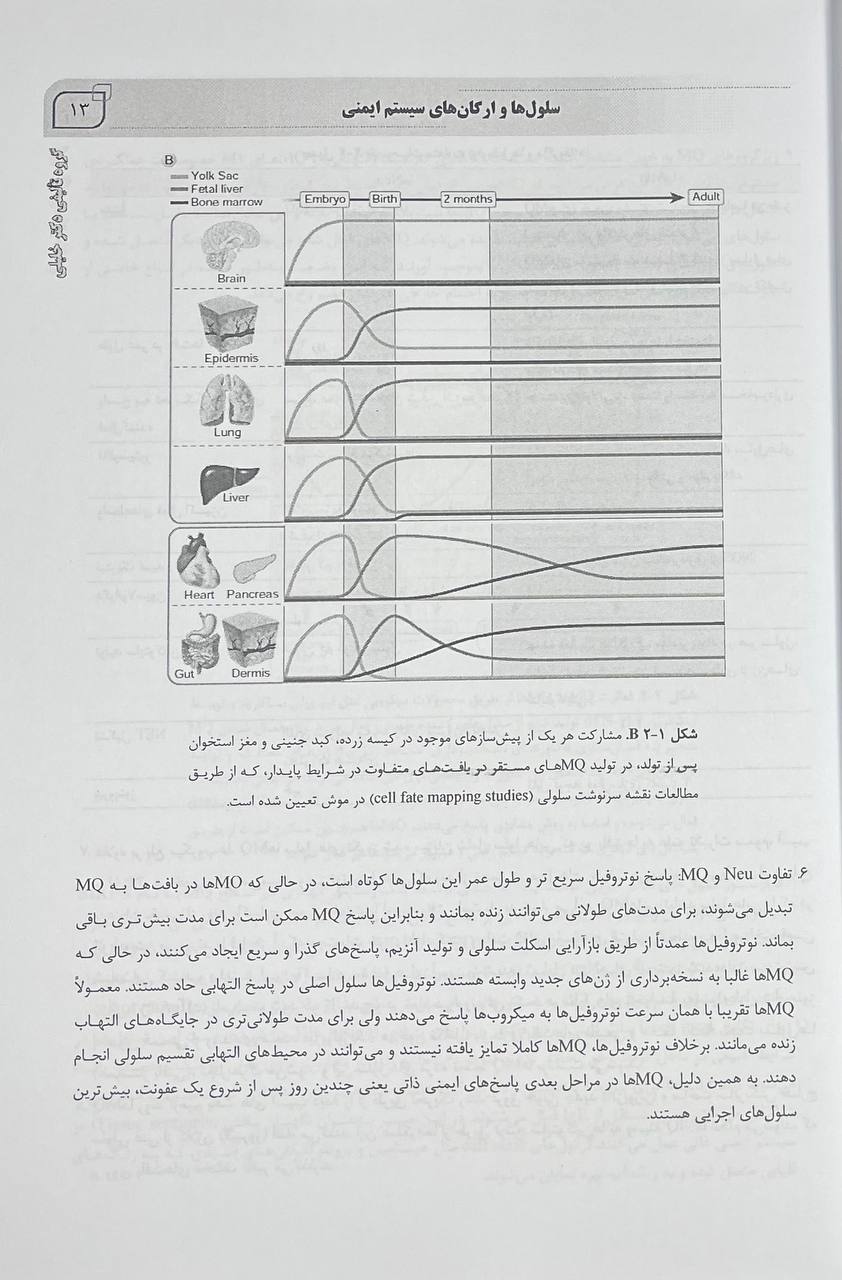 سلول‌ها و ارگان‌های سیستم ایمنی
۱۳
گروه تالیفی دکتر خلیلی
B
Yolk Sac
Fetal liver
Bone marrow
Embryo Birth 2 months Adult
Brain
Epidermis
Lung
Liver
Heart Pancreas
Gut Dermis
شکل ۱-۲ B. مشارکت هر یک از پیش‌سازهای موجود در کیسه زرده، کبد جنینی و مغز استخوان
پس از تولد، در تولید MQهای مستقر در بافت‌های متفاوت در شرایط پایدار، که از طریق
مطالعات نقشه سرنوشت سلولی (cell fate mapping studies) در موش تعیین شده است.
۶. تفاوت Neu و MQ: پاسخ نوتروفیل سریع تر و طول عمر این سلول‌ها کوتاه است، در حالی که MOها در بافت‌ها به MQ
تبدیل می‌شوند، برای مدت‌های طولانی می‌توانند زنده بمانند و بنابراین پاسخ MQ ممکن است برای مدت بیش‌تری باقی
بماند. نوتروفیل‌ها عمدتاً از طریق بازآرایی اسکلت سلولی و تولید آنزیم، پاسخ‌های گذرا و سریع ایجاد می‌کنند، در حالی که
MQها غالبا به نسخه‌برداری از ژن‌های جدید وابسته هستند. نوتروفیل‌ها سلول اصلی در پاسخ التهابی حاد هستند. معمولاً
MQها تقریبا با همان سرعت نوتروفیل‌ها به میکروب‌ها پاسخ می‌دهند ولی برای مدت طولانی‌تری در جایگاه‌های التهاب
زنده می‌مانند. برخلاف نوتروفیل‌ها، MQها کاملا تمایز یافته نیستند و می‌توانند در محیط‌های التهابی تقسیم سلولی انجام
دهند. به همین دلیل، MQها در مراحل بعدی پاسخ‌های ایمنی ذاتی یعنی چندین روز پس از شروع یک عفونت، بیش‌ترین
سلول‌های اجرایی هستند.